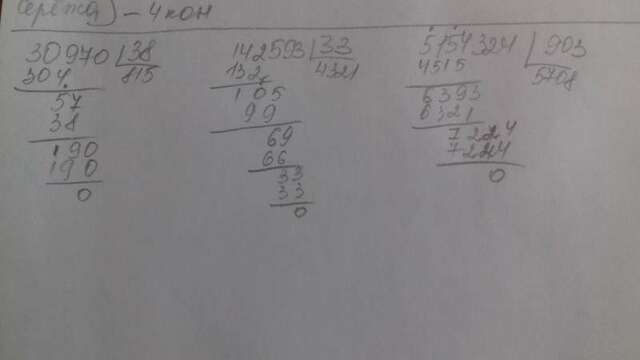 Серёжа) – 4 кон
30970 38
304 815
57
38
190
190
0
142593 33
132 4321
105
99
69
66
33
33
0
5154324 903
4515 5708
6393
6321
7224
7224
0